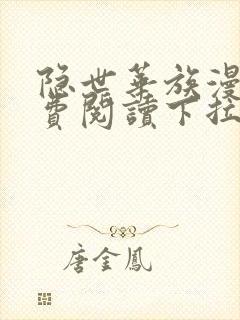 隐世华族漫
费閱讀下拉
唐金鳳